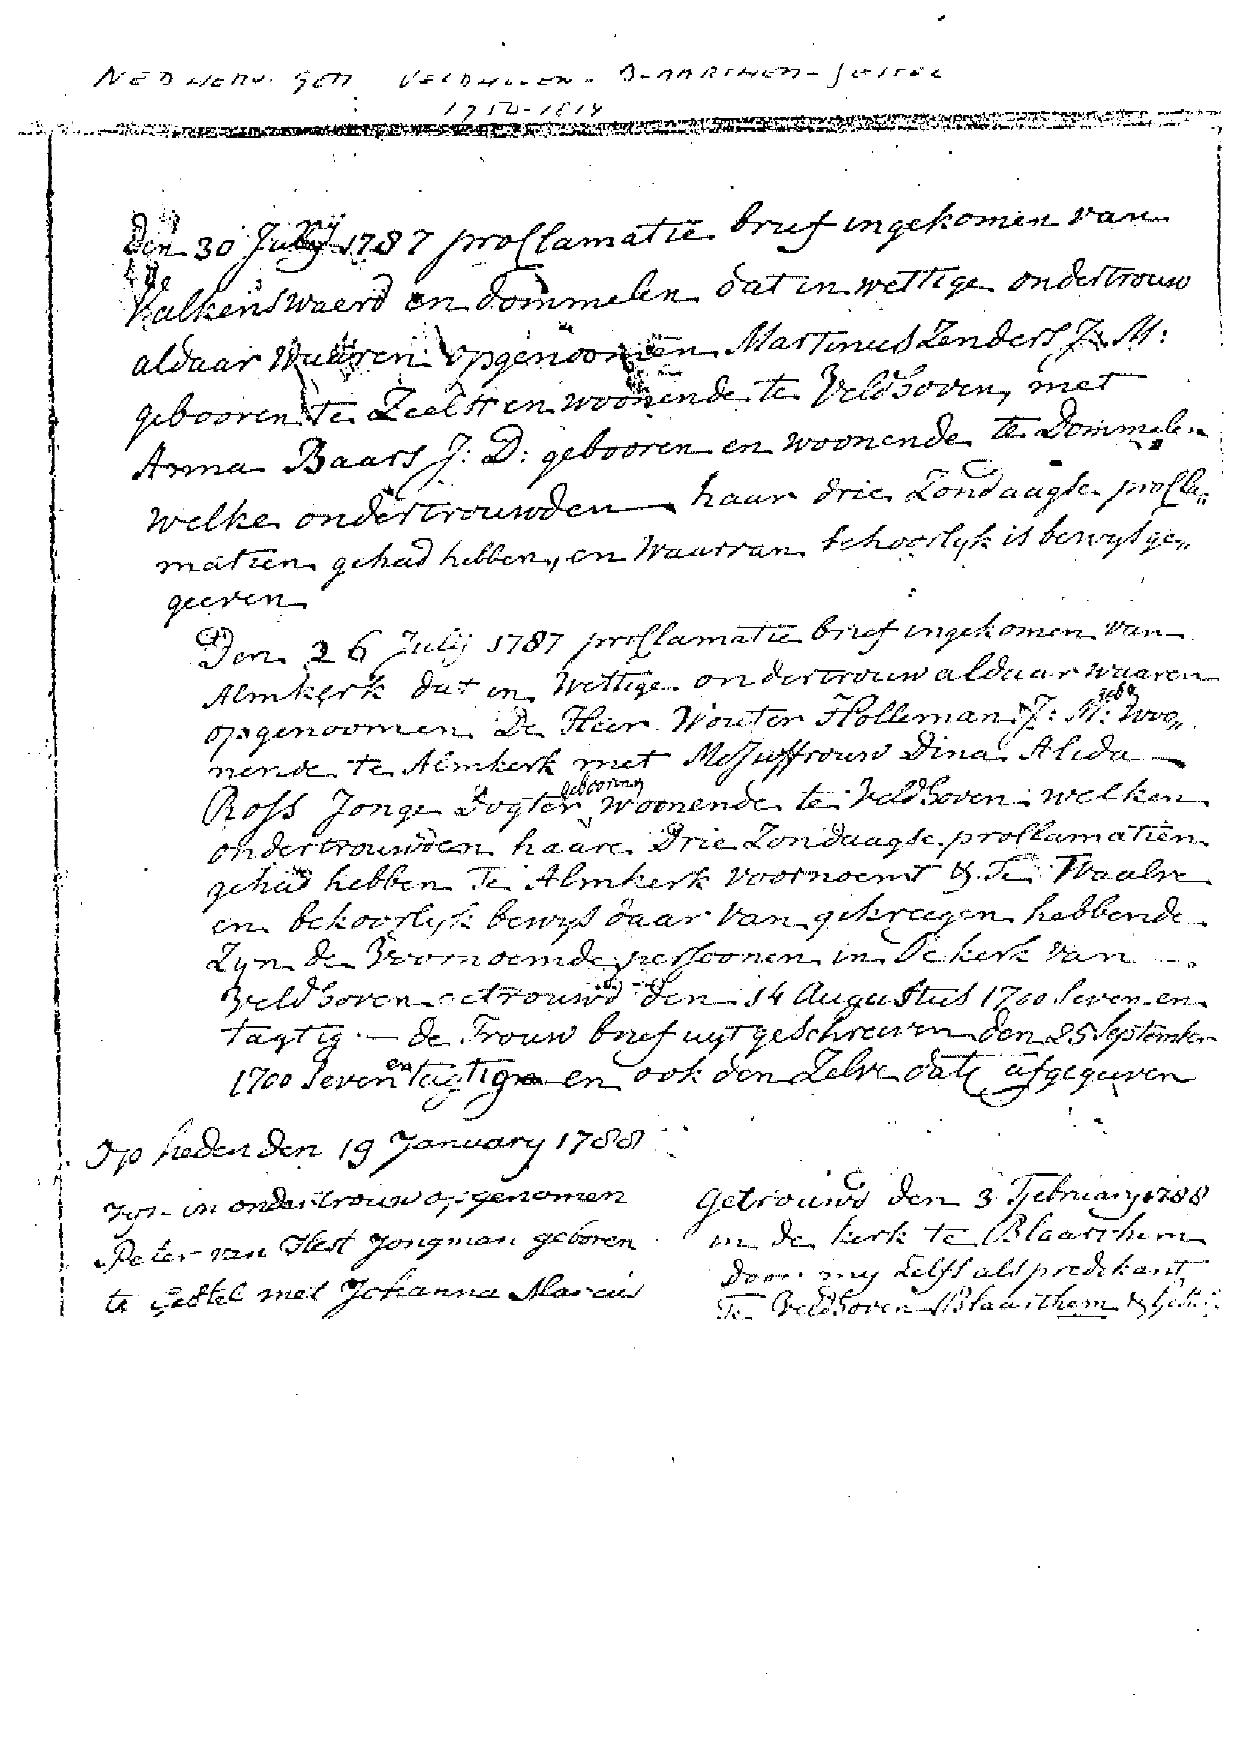 NED HERV. GEM VELDHOVEN - BLAARTHEM - ZEELST
17 - 1814
Den 30 July 1787 proclamatie brief ingekomen van
Valkenswaerd en Dommelen dat in wettige ondertrouw
aldaar waeren opgenoomen Martinus Lenders J: M:
gebooren te Zeelst en woonende te Veldhoven, met
Anna Baars J: D: gebooren en woonende te Dommelen
welke ondertrouwden haar drie Zondaagse procla„
matien gehad hebben, en waarvan behoorlyk is bewys ge„
geeven
Den 26 July 1787 proclamatie brief ingekomen van
Almkerk dat in Wettige ondertrouw aldaar waaren
opgenoomen De Heer Wouter Holleman J: M: geb Woo„
nende te Almkerk met Mejuffrouw Dina Alida
Ross Jonge Dogter gebooren Woonende te Veldhoven welken
ondertrouwden haare Drie Zondaagse proclamatien
gehad hebben Te Almkerk voornoemt & Te Waalre
en behoorlyk bewys daar van gekreegen hebbende
Zyn de Voornoemde persoonen in De kerk van
Veldhoven getrouwd den 14 Augustus 1700 Seven en
tagtig — de Trouw brief uytgeschreven den 25 September
1700 Seven en tagtig en ook den Zelve date afgegeven
Op heden den 19 January 1788
zyn in ondertrouw opgenomen
Peter van Hest Jongman geboren
te Gestel met Johanna Marcus
Getrouwd den 3 February 1788
in de kerk te Blaarthem
door my Zelfs als predikant
Te Veldhoven Blaarthem &